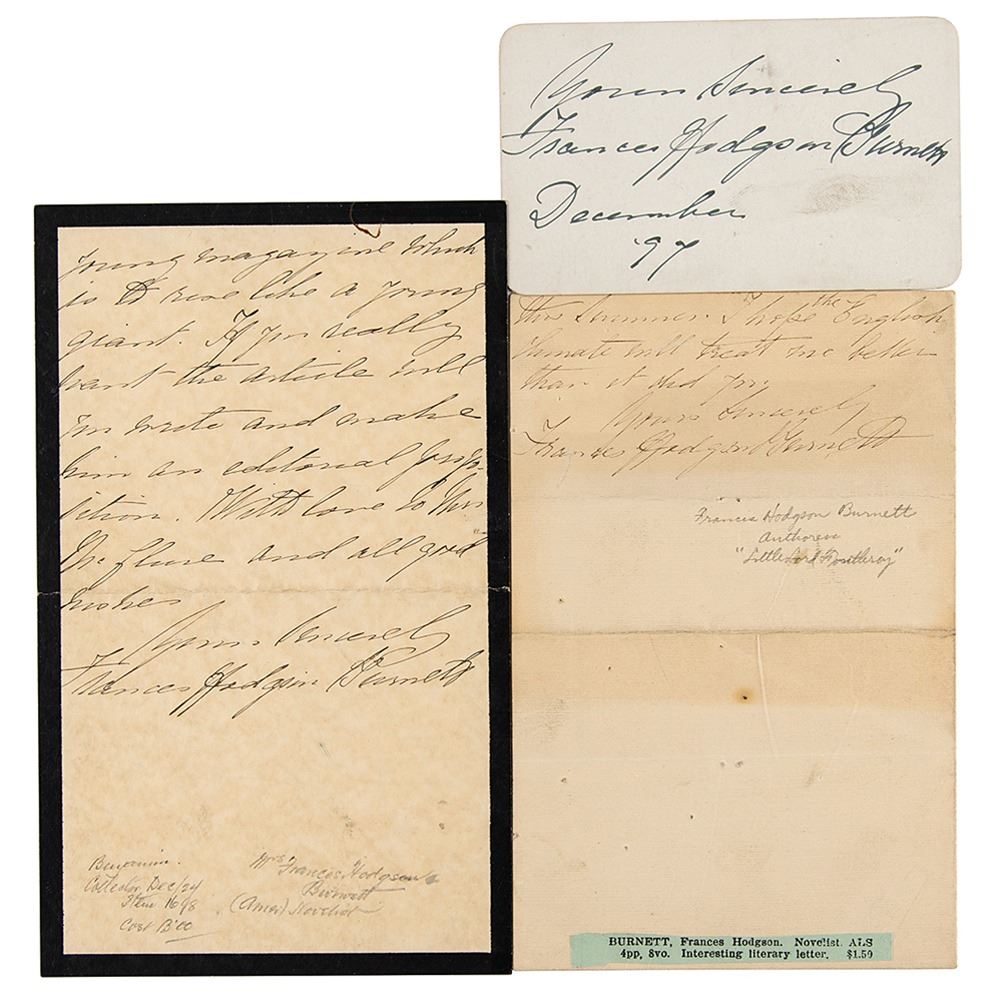 Yours Sincerely
Frances Hodgson Burnett
December
'97
young magazine which
is to rise like a young
giant. If you really
want the article will
you write and make
him an editorial propo-
sition. With love to Mrs
and all good
wishes
Yours Sincerely
Frances Hodgson Burnett
Benjamin.
Collector Dec/24
Item
Cost
Mrs Frances Hodgson
Burnett
(Amer) Novelist
this Summer. I hope the English
climate will treat me better
than it did you
Yours Sincerely
Frances Hodgson Burnett
Francis Hodgson Burnett
Authoress
"Little Lord Fountleroy"
BURNETT, Frances Hodgson. Novelist. ALS
4pp, 8vo. Interesting literary letter. $1.50